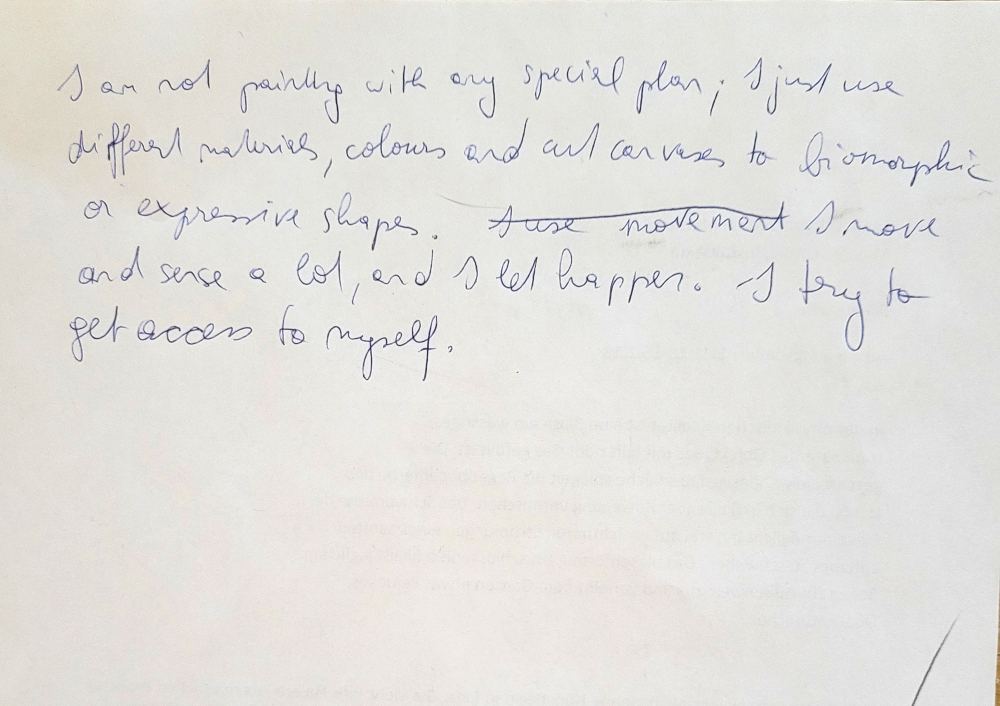 I am not painting with any special plan; I just use
different materials, colours and cut canvases to biomorphic
or expressive shapes. I use movement I move
and sense a lot, and I let happen. I try to
get access to myself.